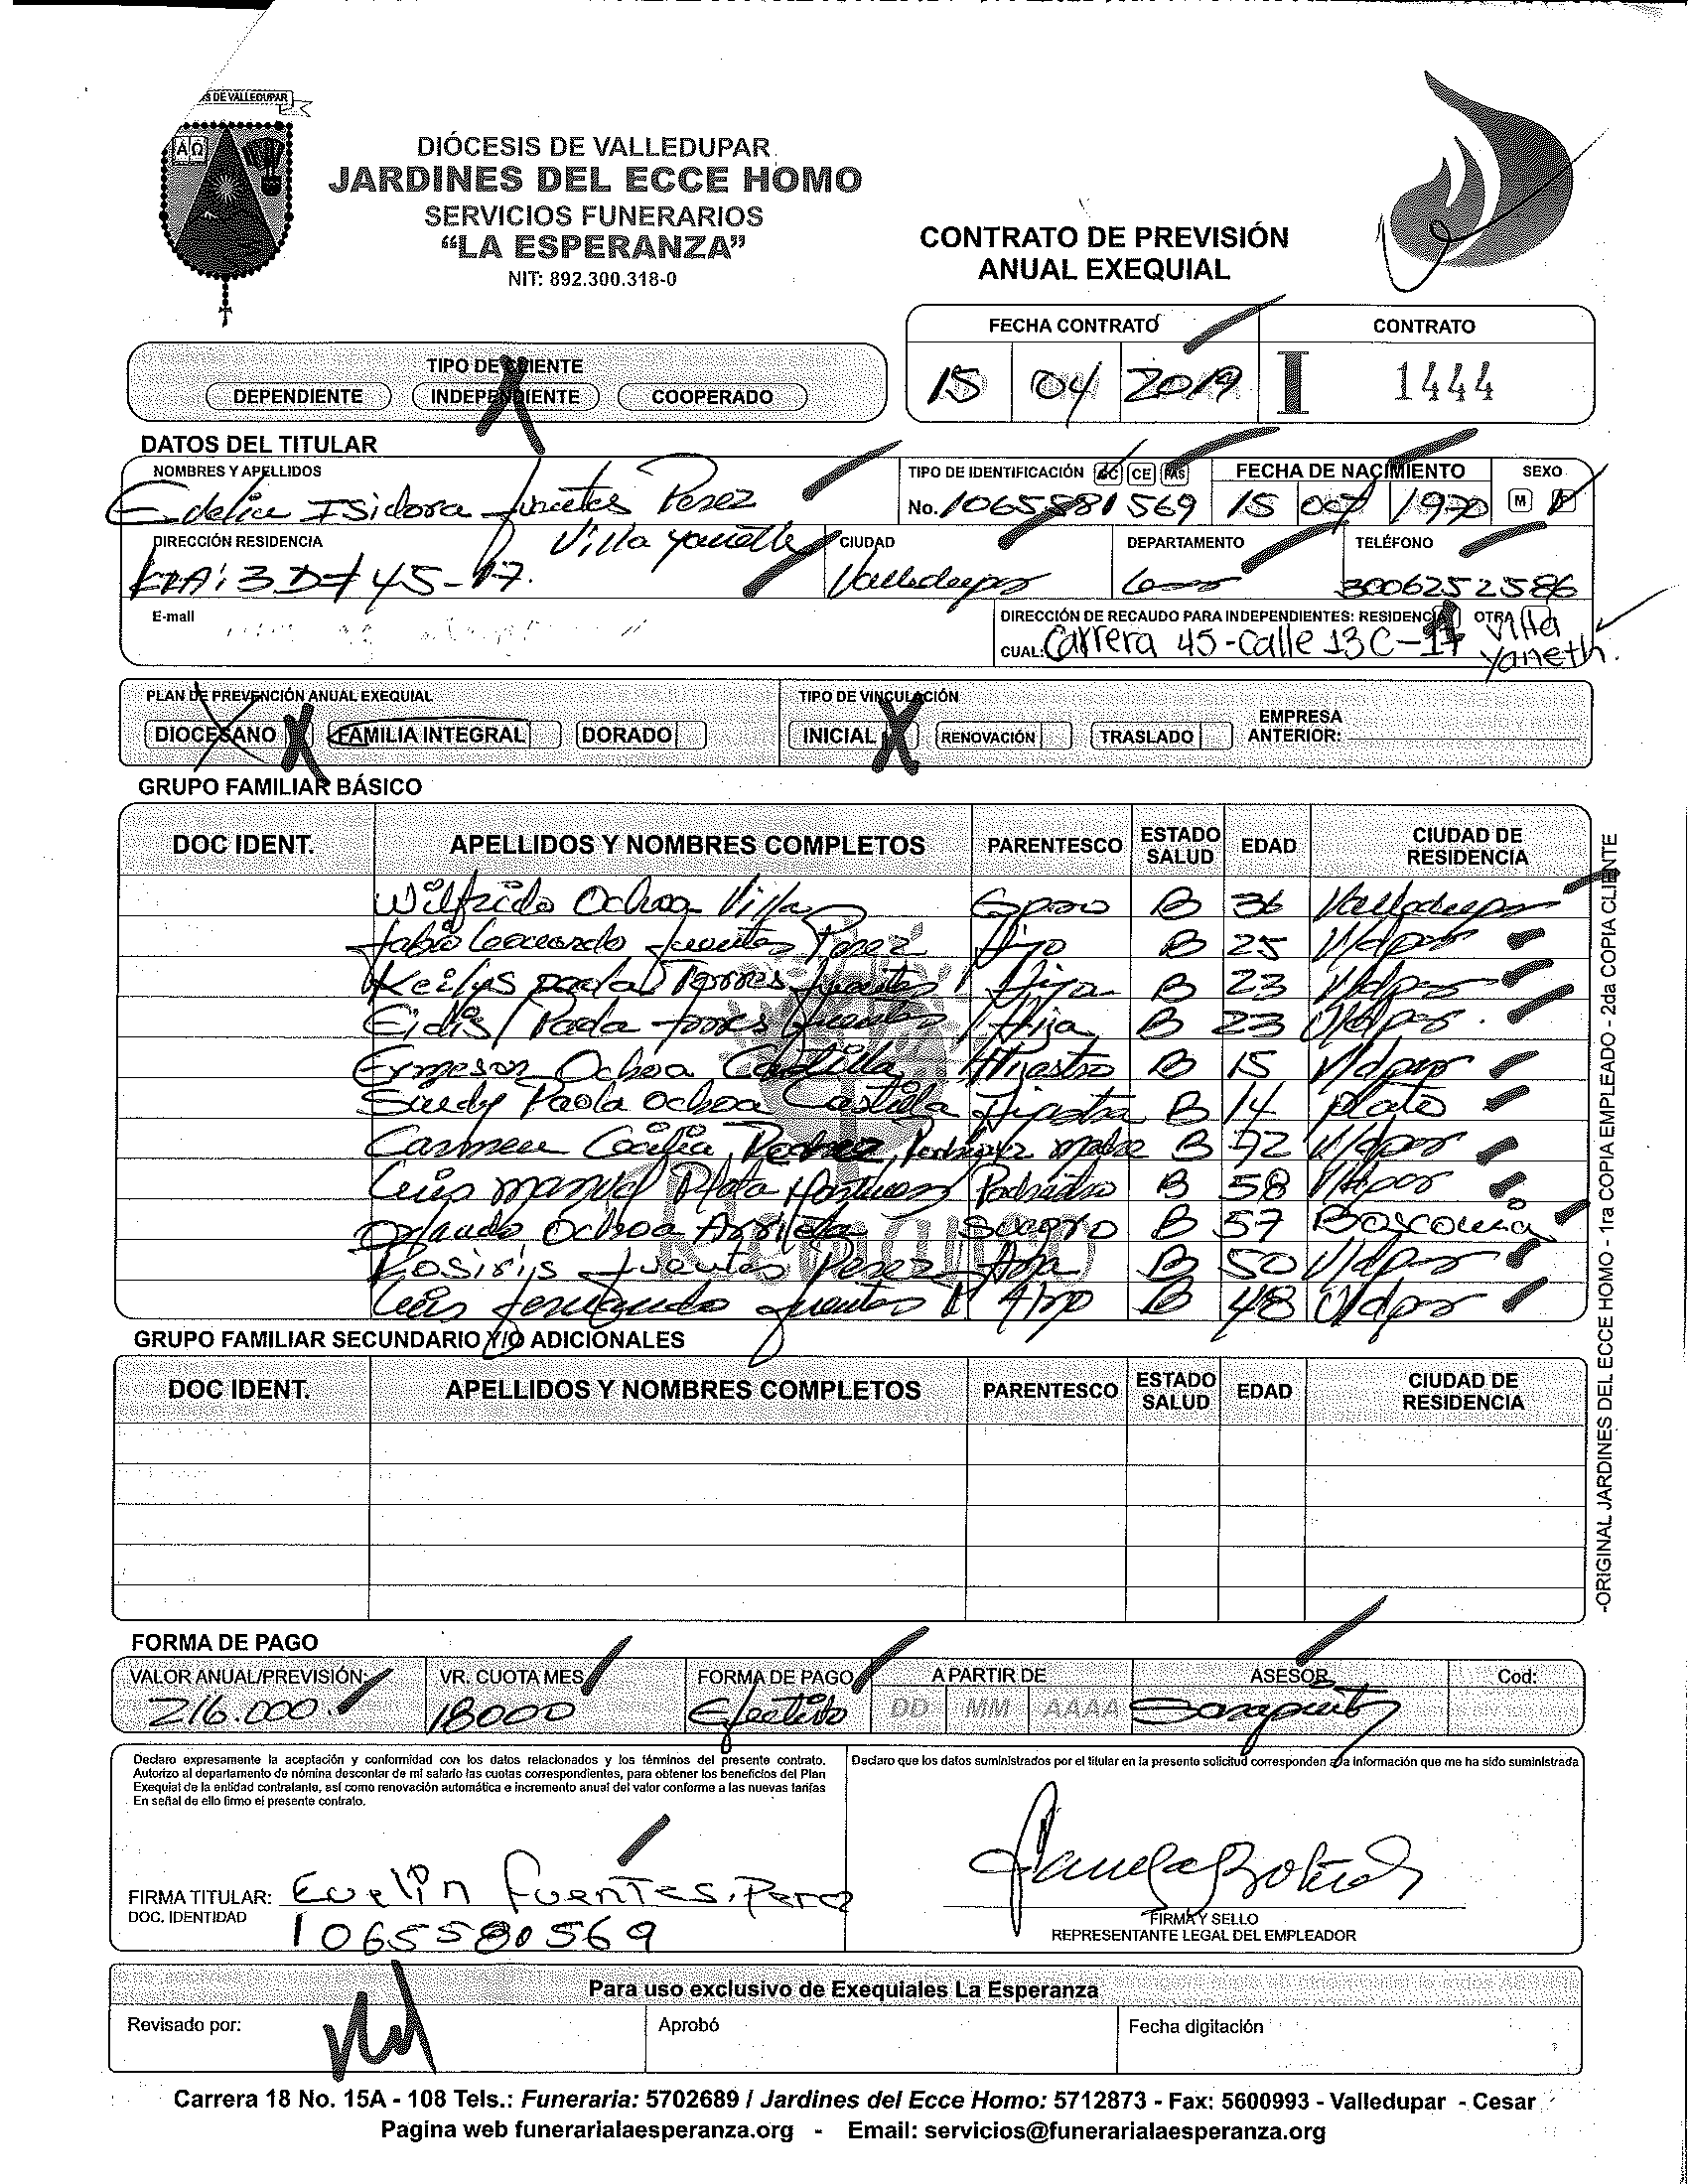 S DE VALLEDUPAR
Α Ω
DIÓCESIS DE VALLEDUPAR
JARDINES DEL ECCE HOMO
SERVICIOS FUNERARIOS
“LA ESPERANZA”
NIT: 892.300.318-0
CONTRATO DE PREVISIÓN
ANUAL EXEQUIAL
FECHA CONTRATO CONTRATO
15 04 2019 I 1444
TIPO DE CLIENTE
DEPENDIENTE INDEPENDIENTE COOPERADO
DATOS DEL TITULAR
NOMBRES Y APELLIDOS TIPO DE IDENTIFICACIÓN CC CE PAS FECHA DE NACIMIENTO SEXO
Isidora fuentes Perez No. 1065881569 15 1970 M F
DIRECCIÓN RESIDENCIA Villa Yaneth CIUDAD DEPARTAMENTO TELÉFONO
KRA: 3D# 45-17. Valledupar 3006252586
E-mail DIRECCIÓN DE RECAUDO PARA INDEPENDIENTES: RESIDENCIA OTRA
CUAL: Carrera 45-Calle 13C-17 Villa
Yaneth.
PLAN DE PREVENCIÓN ANUAL EXEQUIAL TIPO DE VINCULACIÓN
DIOCESANO FAMILIA INTEGRAL DORADO INICIAL RENOVACIÓN TRASLADO EMPRESA
ANTERIOR:
GRUPO FAMILIAR BÁSICO
DOC IDENT. APELLIDOS Y NOMBRES COMPLETOS PARENTESCO ESTADO SALUD EDAD CIUDAD DE RESIDENCIA
Wilfrido Ochoa Villa B 36 Valledupar
Fabio Leonardo fuentes Perez Hijo B 25 V/dpar
Keilys paola Torres fuentes Hija B 23 V/dpar
Eidis Paola torres fuentes Hija B 23 V/dpar.
Ochoa Castilla Hijastro B 15 V/dpar
Paola Ochoa Castilla Hijastra B 14 plato
Carmen Cecilia madre B 72 V/dpar
Luis manuel Plata Padrastro B 58 V/dpar
Orlando Ochoa Arrieta Suegro B 57 Bosconia
Rosiris fuentes Perez B 50 V/dpar
Luis fernando fuentes P B 48 V/dpar
Recaudo
GRUPO FAMILIAR SECUNDARIO Y/O ADICIONALES
DOC IDENT. APELLIDOS Y NOMBRES COMPLETOS PARENTESCO ESTADO SALUD EDAD CIUDAD DE RESIDENCIA
-ORIGINAL JARDINES DEL ECCE HOMO - 1ra COPIA EMPLEADO - 2da COPIA CLIENTE
FORMA DE PAGO
VALOR ANUAL/PREVISIÓN: VR. CUOTA MES FORMA DE PAGO A PARTIR DE ASESOR Cod:
216.000. 18000 Efectivo DD MM AAAA
Declaro expresamente la aceptación y conformidad con los datos relacionados y los términos del presente contrato.
Autorizo al departamento de nómina descontar de mi salario las cuotas correspondientes, para obtener los beneficios del Plan
Exequial de la entidad contratante, así como renovación automática e incremento anual del valor conforme a las nuevas tarifas
En señal de ello firmo el presente contrato.
Declaro que los datos suministrados por el titular en la presente solicitud corresponden a la información que me ha sido suministrada
FIRMA TITULAR: Evelin fuentes.Perez
DOC. IDENTIDAD 1065580569
FIRMA Y SELLO
REPRESENTANTE LEGAL DEL EMPLEADOR
Para uso exclusivo de Exequiales La Esperanza
Revisado por: Aprobó Fecha digitación
Carrera 18 No. 15A - 108 Tels.: Funeraria: 5702689 / Jardines del Ecce Homo: 5712873 - Fax: 5600993 - Valledupar - Cesar
Pagina web funerarialaesperanza.org - Email: servicios@funerarialaesperanza.org